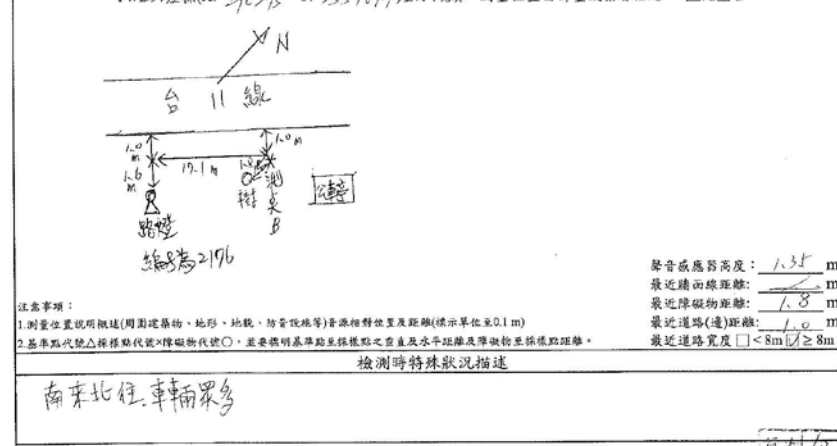 N
台 11 線
1.0 m
1.0 m
17.1 m
1.6 m
樹
測点B
公車亭
路燈
編號為2176
聲音感應器高度：1.35 m
最近牆面線距離: ／ m
最近障礙物距離: 1.8 m
最近道路(邊)距離: 1.0 m
最近道路寬度 □ < 8m ☑ ≥ 8m
注意事項：
1.測量位置說明概述(周圍建築物、地形、地貌、防音設施等)音源相對位置及距離(標示單位至0.1 m)
2.基準點代號△採樣點代號×障礙物代號○，並要標明基準點至採樣點之垂直及水平距離及障礙物至採樣點距離。
檢測時特殊狀況描述
南來北往、車輛眾多